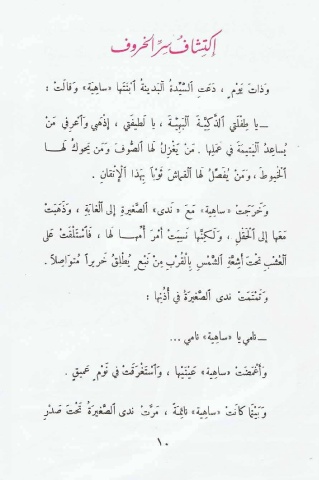 إِكتِشَافُ سِرِّ الخَروف
وَذَاتَ يَوْمٍ ، دَعَتِ ٱلسَّيِّدَةُ ٱلبَدينَةُ ٱبْنَتَهَا «ساهِيَة» وَقالَتْ :
ــ يا طِفْلَتِي ٱلذَّكِيَّةَ ٱلبَهِيَّةَ ، يا لَطيفَتِي ، إِذْهَبِي وَٱعْرِفي مَنْ
يُسَاعِدُ ٱليَتيمَةَ في عَمَلِهَا. مَنْ يَغْزِلُ لَهَا ٱلصُّوفَ وَمَنْ يَحُوكُ لَهَا
ٱلخُيوطَ ، وَمَنْ يُفَصِّلُ لَهَا ٱلقُمَاشَ ثَوْبًا بِهَذَا ٱلإِتْقَانِ .
وَخَرَجَتْ «ساهِيَة» مَعَ «نَدى» ٱلصَّغيرَةِ إِلى ٱلغَابَةِ ، وَذَهَبَتْ
مَعَها إِلى ٱلحَقْلِ ، وَلَكِنَّها نَسِيَتْ أَمْرَ أُمِّهَا لَها ، فَٱسْتَلْقَتْ عَلى
ٱلعُشْبِ تَحْتَ أَشِعَّةِ ٱلشَّمْسِ بِٱلقُرْبِ مِنْ نَبْعٍ يُطْلِقُ خَريرًا مُتَواصِلاً .
وَتَمْتَمَتْ نَدى ٱلصَّغيرَةُ في أُذُنِهَا :
ــ نامي يا «ساهِيَة» نامي ...
وَأَغْمَضَتْ «ساهِيَة» عَيْنَيْهَا ، وَٱسْتَغْرَقَتْ في نَوْمٍ عَميقٍ .
وَبَيْنَمَا كَانَتْ «ساهِيَة» نائِمَةً ، مَرَّتْ نَدى ٱلصَّغيرَةُ تَحْتَ صَدْرِ
١٠